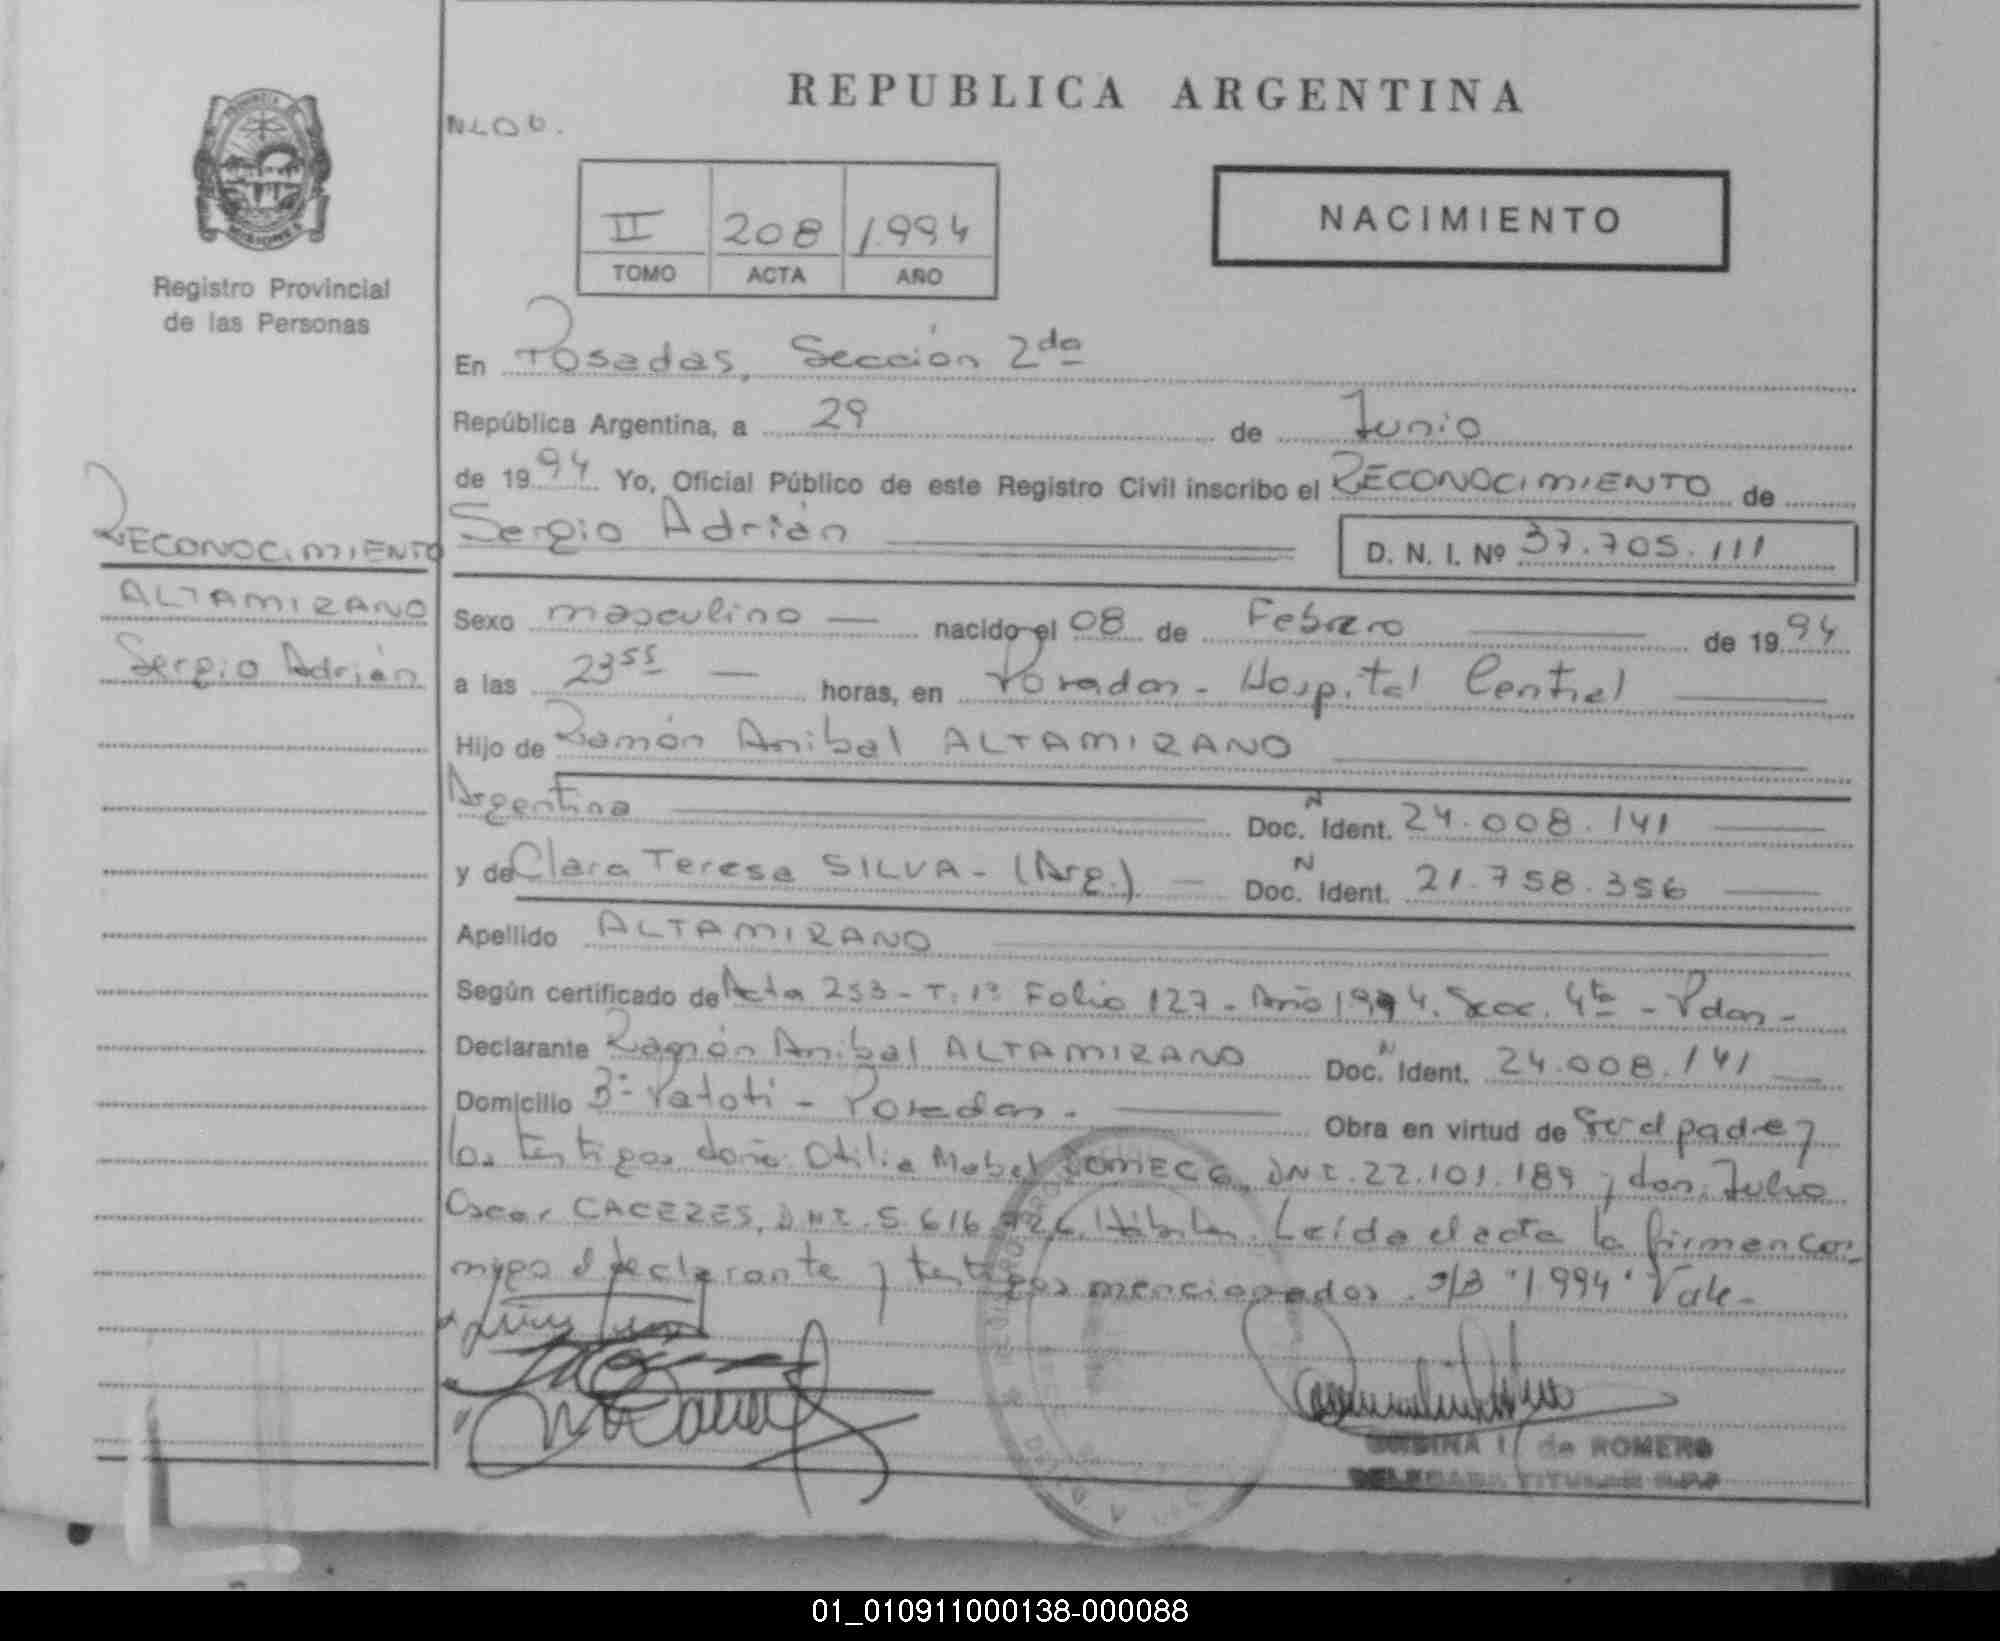 REPUBLICA ARGENTINA
NACIMIENTO
II 208 1994
TOMO ACTA AÑO
Registro Provincial
de las Personas
En Posadas, Sección 2da
República Argentina, a 29 de Junio
de 1994 Yo, Oficial Público de este Registro Civil inscribo el RECONOCIMIENTO de
Sergio Adrián D. N. I. Nº 37.705.111
RECONOCIMIENTO
ALTAMIRANO
Sergio Adrián
Sexo masculino nacido el 08 de Febrero de 1994
a las 23 55 horas, en Posadas - Hospital Central
Hijo de Ramón Anibal ALTAMIRANO
Argentina Doc. N Ident. 24.008.141
y de Clara Teresa SILVA - (Arg.) Doc. N Ident. 21.758.356
Apellido ALTAMIRANO
Según certificado de Acta 253 - T: 1º Folio 127 - Año 1994. Secc. 4ta - Pdas -
Declarante Ramón Anibal ALTAMIRANO Doc. N Ident. 24.008.141
Domicilio Bº Patotí - Posadas. Obra en virtud de Ser el padre y
los testigos doña: Otilia Mabel DNI. 22.101.189 y don: Julio
Oscar CACERES, DNI. 5.616. Hábiles. Leída el acta la firman con-
migo el declarante y testigos mencionados. s/B "1994" Vale -
de ROMERO
DELEGADA TITULAR
01_010911000138-000088